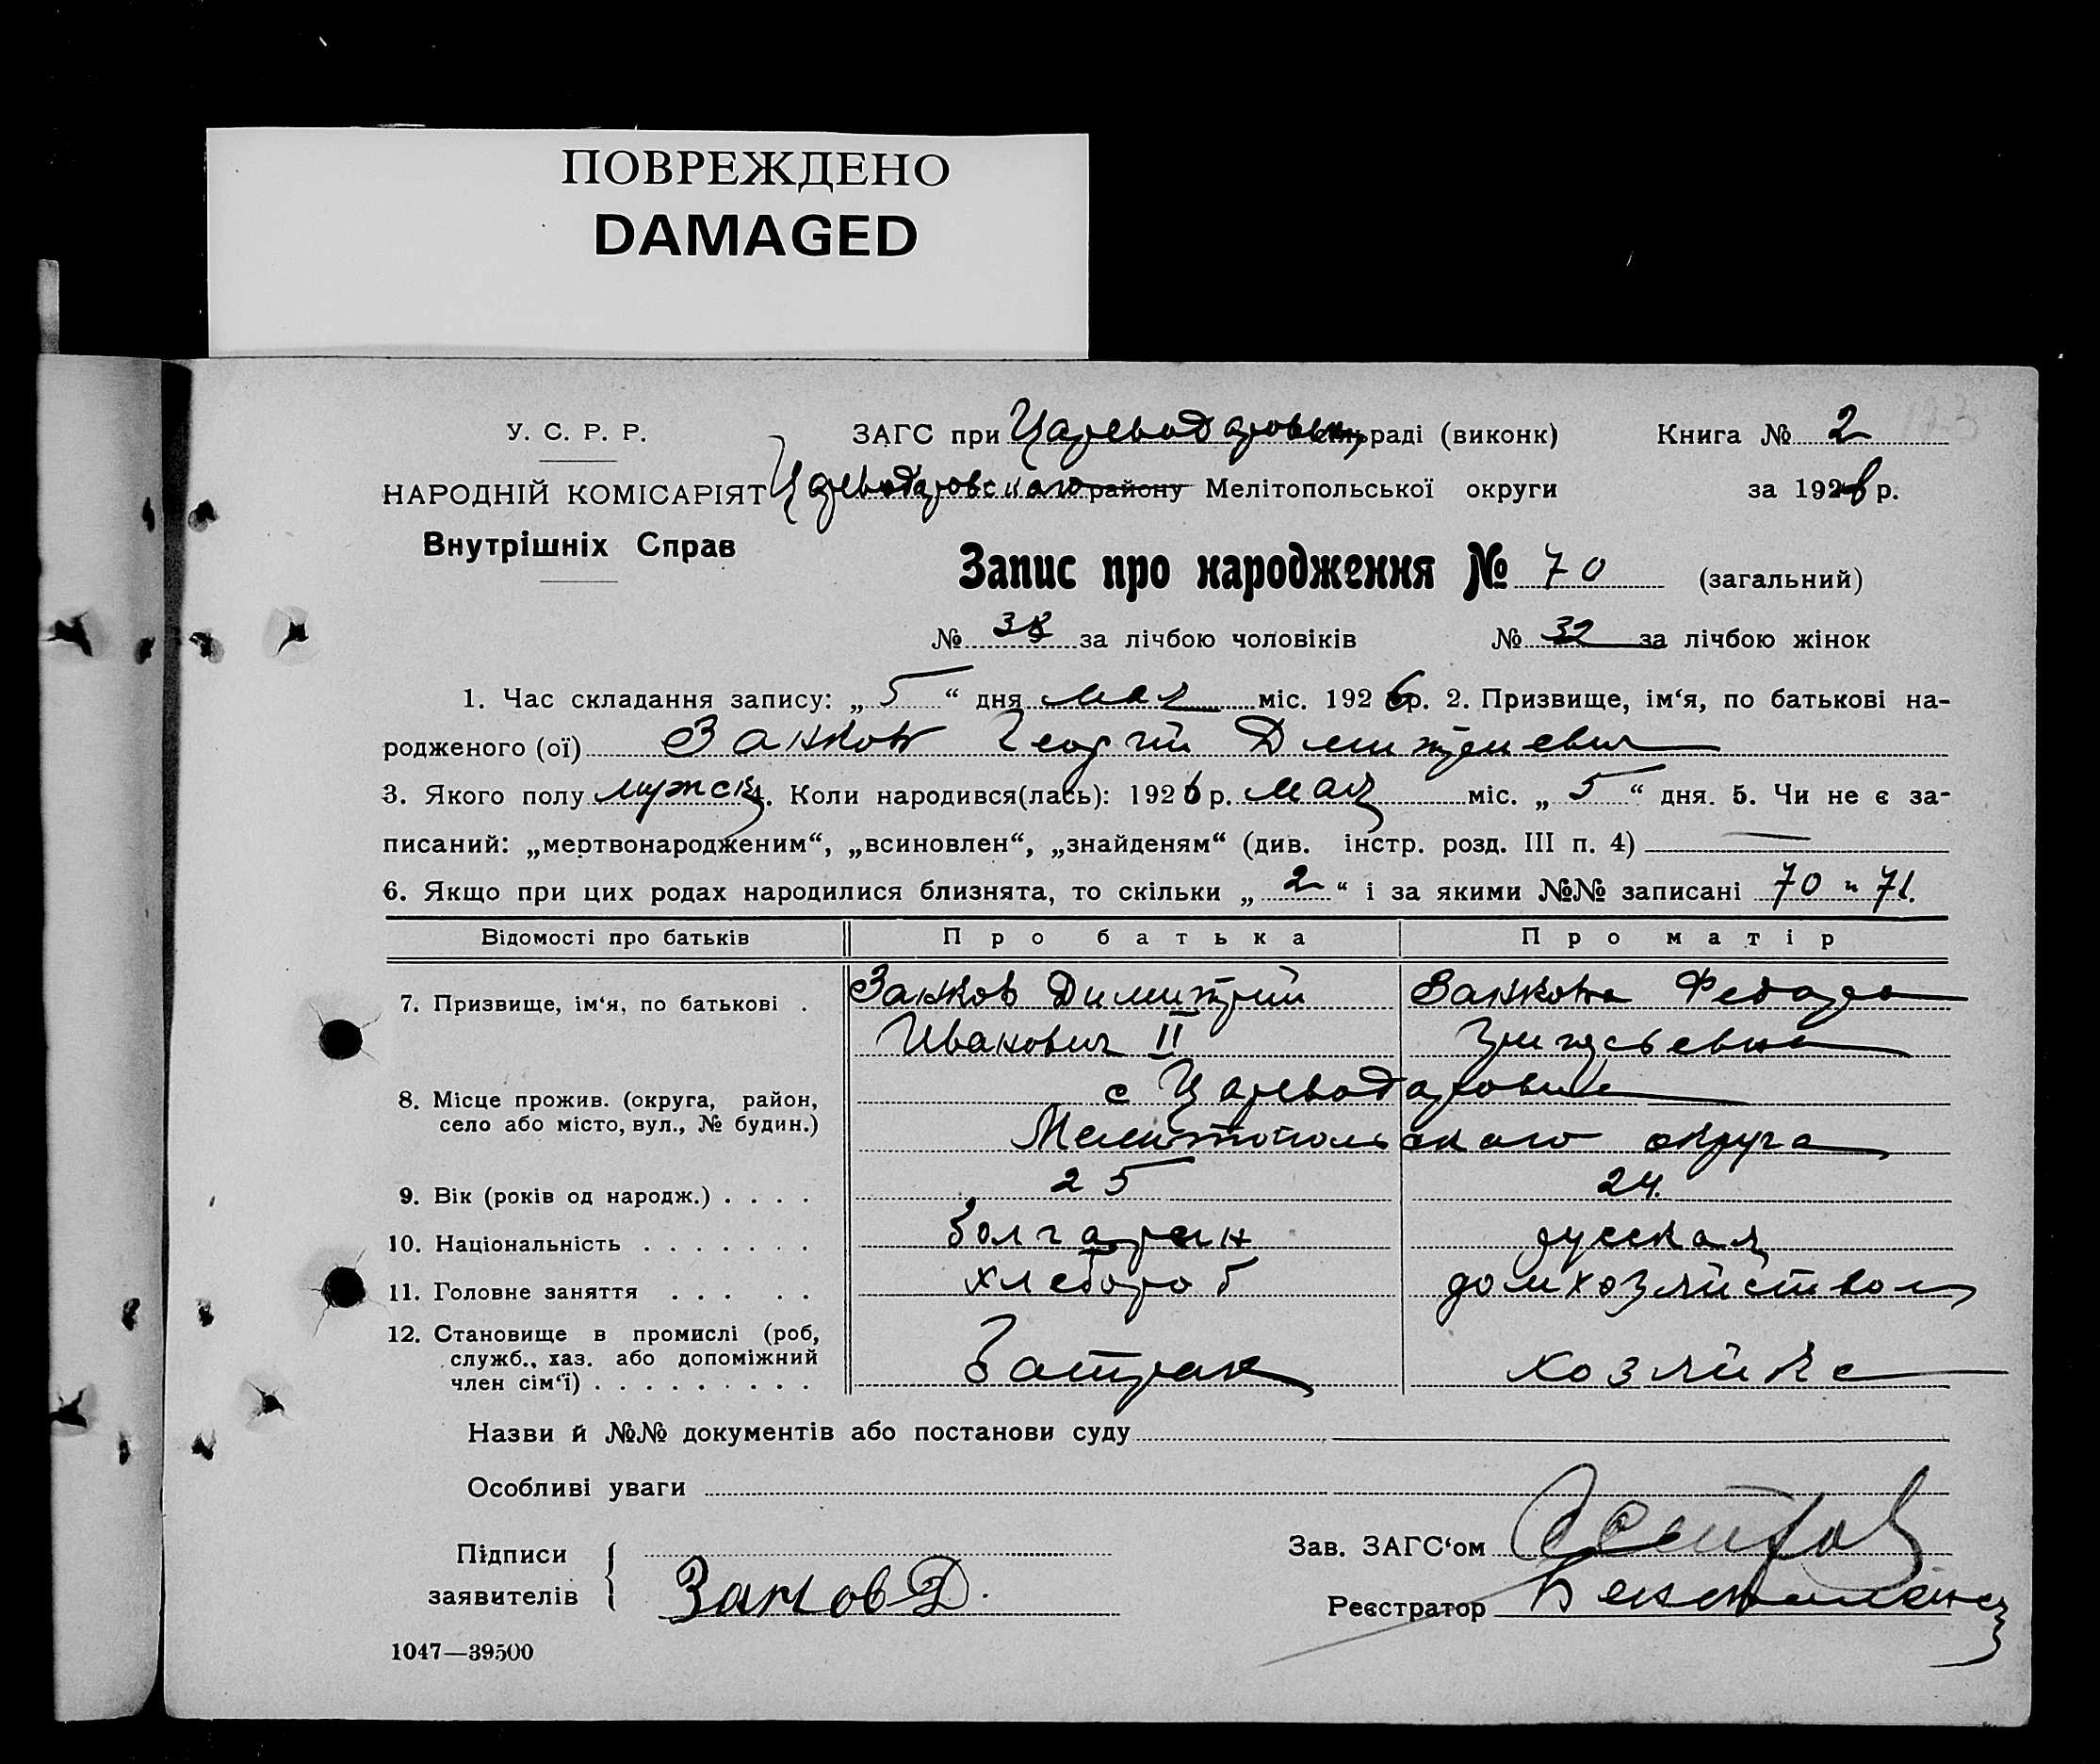 ПОВРЕЖДЕНО
DAMAGED
У. С. Р. Р.
ЗАГС при Цареводаровск раді (виконк)
Книга № 2
НАРОДНІЙ КОМІСАРІЯТ
Цареводаровского району Мелітопольської округи
за 1926 р.
Внутрішніх Справ
Запис про народження № 70 (загальний)
№ 38 за лічбою чоловіків № 32 за лічбою жінок
1. Час складання запису: „ 5 “ дня мая міс. 1926 р. 2. Призвище, ім‘я, по батькові на-
родженого (ої) Занков Георгий Дмитриевич
3. Якого полу мужск 4. Коли народився(лась): 1926 р. мая міс. „ 5 “ дня. 5. Чи не є за-
писаний: „мертвонародженим“, „всиновлен“, „знайденям“ (див. інстр. розд. III п. 4)
6. Якщо при цих родах народилися близнята, то скільки „ 2 “ і за якими №№ записані 70 и 71.
Відомості про батьків Про батька Про матір
7. Призвище, ім‘я, по батькові . Занков Димитрий Занкова Федора
Иванович II
8. Місце прожив. (округа, район, с Цареводаровки
село або місто, вул., № будин.) Мелитопольского округа
9. Вік (років од народж.) . . . . 25 24.
10. Національність . . . . . . . болгарин русская
11. Головне заняття . . . . . хлебороб домхозяйством
12. Становище в промислі (роб,
служб., хаз. або допоміжний
член сім‘ї) . . . . . . . . . батрак хозяйка
Назви й №№ документів або постанови суду
Особливі уваги
Підписи
заявителів Занков Д.
Зав. ЗАГС‘ом
Реєстратор
1047—39500